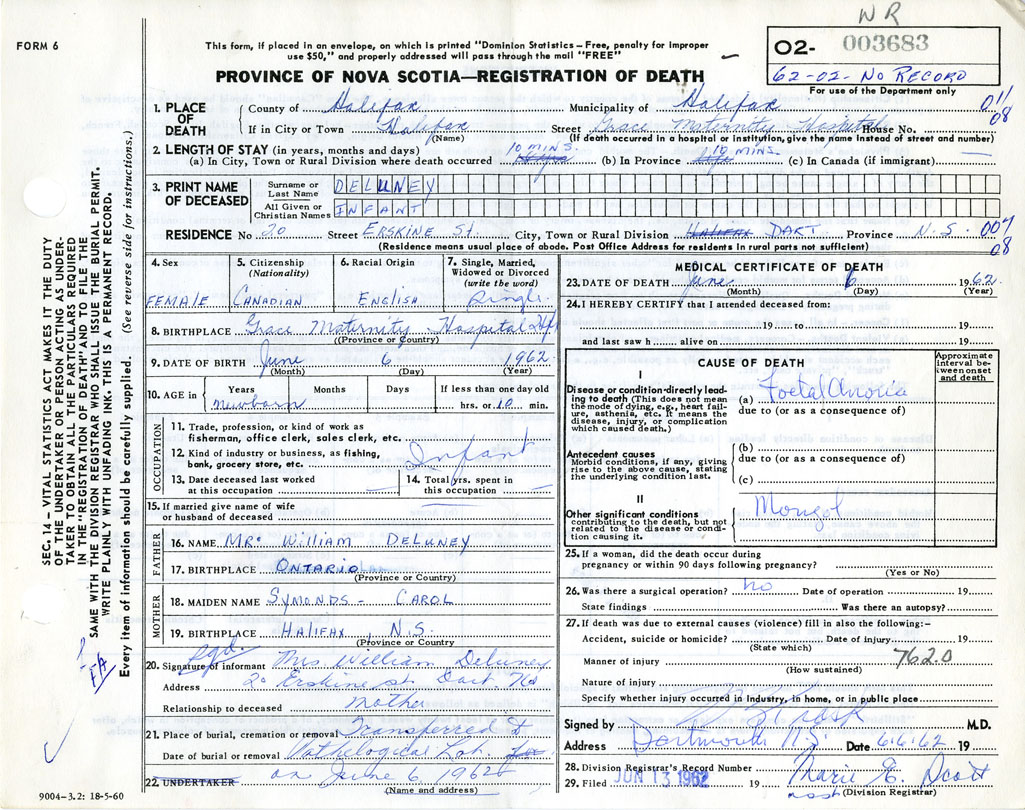 WR
FORM 6
This form, if placed in an envelope, on which is printed "Dominion Statistics—Free, penalty for improper
use $50," and properly addressed will pass through the mail "FREE"
PROVINCE OF NOVA SCOTIA—REGISTRATION OF DEATH
02- 003683
62-02- No RECORD
For use of the Department only
011
08
1. PLACE OF DEATH
County of Halifax Municipality of Halifax
If in City or Town Halifax (Name) Street Grace Maternity Hospital House No.
(If death occurred in a hospital or institution, give the name instead of street and number)
2. LENGTH OF STAY (in years, months and days)
(a) In City, Town or Rural Division where death occurred 10 mins. (b) In Province life 10 mins. (c) In Canada (if immigrant) —
3. PRINT NAME OF DECEASED
Surname or Last Name DELUNEY
All Given or Christian Names INFANT
RESIDENCE No 20 Street ERSKINE St. City, Town or Rural Division Halifax DART Province N.S. 007
08
(Residence means usual place of abode. Post Office Address for residents in rural parts not sufficient)
4. Sex FEMALE
5. Citizenship (Nationality) CANADIAN
6. Racial Origin ENGLISH
7. Single, Married, Widowed or Divorced (write the word) Single
8. BIRTHPLACE Grace Maternity Hospital Hfx
(Province or Country)
9. DATE OF BIRTH June 6 1962
(Month) (Day) (Year)
10. AGE in Years Months Days If less than one day old
Newborn hrs. or 10 min.
OCCUPATION
11. Trade, profession, or kind of work as
fisherman, office clerk, sales clerk, etc.
12. Kind of industry or business, as fishing,
bank, grocery store, etc.
Infant
13. Date deceased last worked
at this occupation —
14. Total yrs. spent in
this occupation —
15. If married give name of wife
or husband of deceased
FATHER
16. NAME MR. William DELUNEY
17. BIRTHPLACE ONTARIO
(Province or Country)
MOTHER
18. MAIDEN NAME SYMONDS - CAROL
19. BIRTHPLACE HALIFAX, N.S.
(Province or Country)
sgd.
20. Signature of informant Mrs William Deluney
Address 20 Erskine st. Dart. NS
Relationship to deceased mother
21. Place of burial, cremation or removal Transferred to
Date of burial or removal Pathological Lab.
22. UNDERTAKER on June 6, 1962
(Name and address)
9004-3.2: 18-5-60
MEDICAL CERTIFICATE OF DEATH
23. DATE OF DEATH June 6 1962
(Month) (Day) (Year)
24. I HEREBY CERTIFY that I attended deceased from:
19 to 19
and last saw h alive on 19
CAUSE OF DEATH
Approximate interval between onset and death
I
Disease or condition directly leading to death (This does not mean the mode of dying, e.g., heart failure, asthenia, etc. It means the disease, injury, or complication which caused death.)
(a) Foetal Anoxia
due to (or as a consequence of)
Antecedent causes
Morbid conditions, if any, giving rise to the above cause, stating the underlying condition last.
(b)
due to (or as a consequence of)
(c)
II
Other significant conditions contributing to the death, but not related to the disease or condition causing it.
Mongol
25. If a woman, did the death occur during
pregnancy or within 90 days following pregnancy?
(Yes or No)
26. Was there a surgical operation? no Date of operation 19
State findings Was there an autopsy?
27. If death was due to external causes (violence) fill in also the following:—
Accident, suicide or homicide? Date of injury 19
(State which)
Manner of injury 762.0
(How sustained)
Nature of injury
Specify whether injury occurred in industry, in home, or in public place
Signed by M.D.
Address Dartmouth N.S. Date 6.6.62 19
28. Division Registrar's Record Number
29. Filed JUN 13 1962 19 Marie E. Scott
(Division Registrar)
SEC. 14 – VITAL STATISTICS ACT MAKES IT THE DUTY
OF THE UNDERTAKER OR PERSON ACTING AS UNDER-
TAKER TO OBTAIN ALL THE PARTICULARS REQUIRED
IN THE "REGISTRATION OF DEATH" AND TO FILE THE
SAME WITH THE DIVISION REGISTRAR WHO SHALL ISSUE THE BURIAL PERMIT.
WRITE PLAINLY WITH UNFADING INK. THIS IS A PERMANENT RECORD.
Every item of information should be carefully supplied. (See reverse side for instructions.)